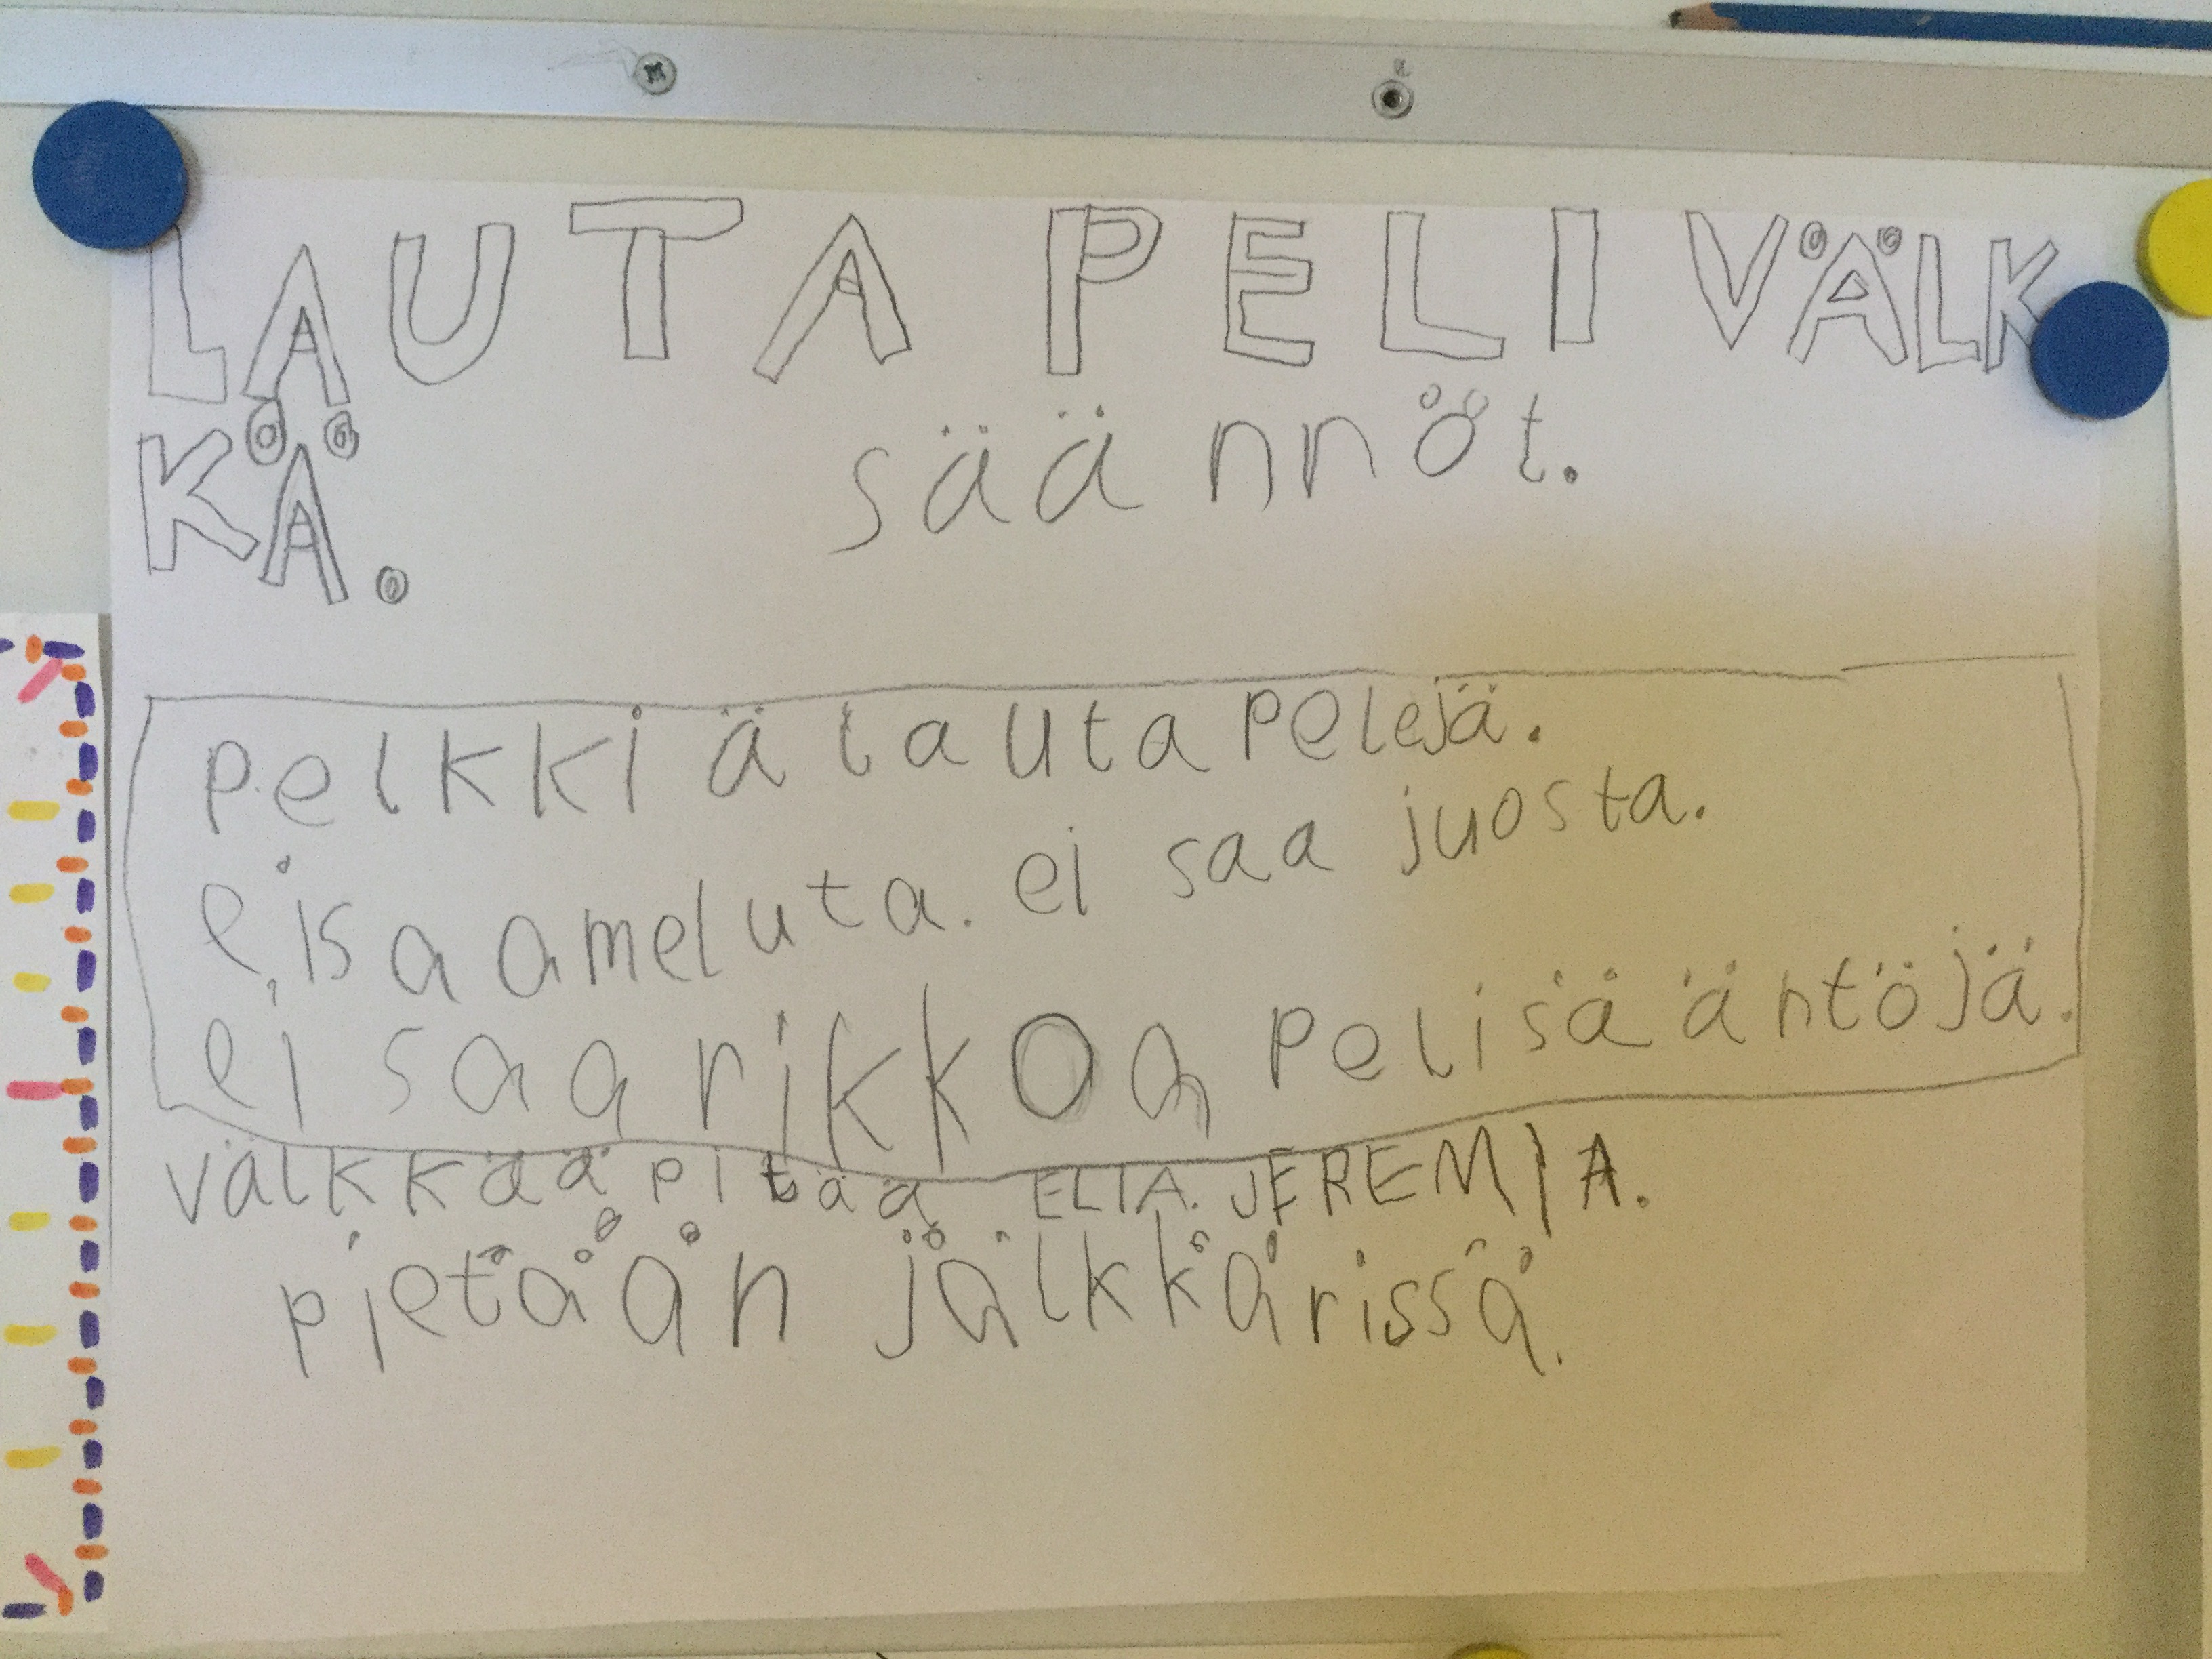 LAUTA PELI VÄLK
KÄ.
säännöt.
pelkkiä lautapelejä.
ei saa meluta. ei saa juosta.
ei saa rikkoa pelisääntöjä.
välkkää pitää. ELIA. JEREMIA.
pietään jälkkärissä.